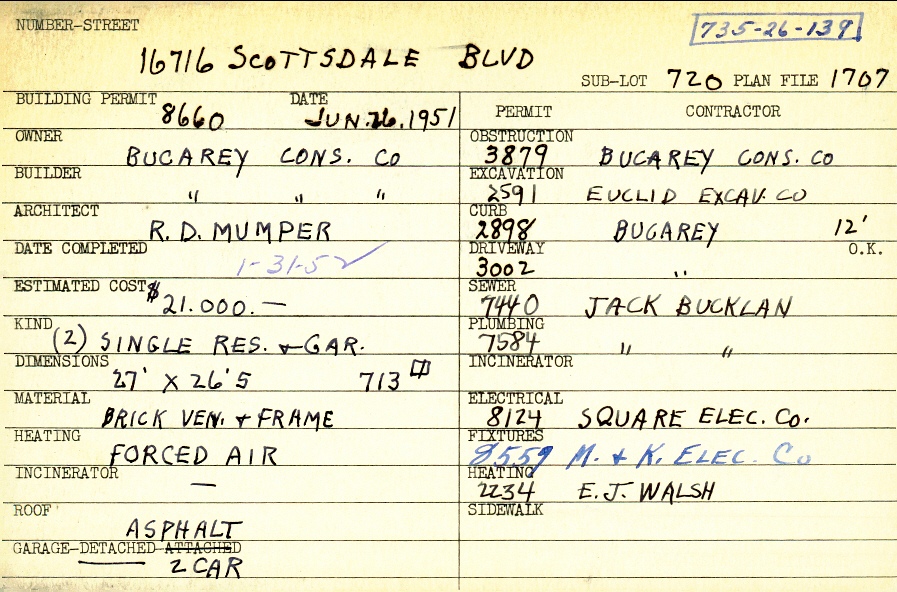 NUMBER-STREET
735-26-139
16716 SCOTTSDALE BLVD
SUB-LOT 720 PLAN FILE 1707
BUILDING PERMIT DATE
8660 JUN.26.1951
OWNER
BUCAREY CONS. CO
BUILDER
" " "
ARCHITECT
R.D. MUMPER
DATE COMPLETED
1-31-52 ✓
ESTIMATED COST $
21.000.—
KIND
(2) SINGLE RES. & GAR.
DIMENSIONS
27' X 26'5 713
MATERIAL
BRICK VEN. & FRAME
HEATING
FORCED AIR
INCINERATOR
—
ROOF
ASPHALT
GARAGE-DETACHED ATTACHED
2 CAR
PERMIT CONTRACTOR
OBSTRUCTION
3879 BUCAREY CONS. CO
EXCAVATION
2591 EUCLID EXCAV. CO
CURB
2898 BUCAREY 12'
DRIVEWAY O.K.
3002 "
SEWER
7440 JACK BUCKLAN
PLUMBING
7584 " "
INCINERATOR
ELECTRICAL
8124 SQUARE ELEC. CO.
FIXTURES
8559 M. & K. ELEC. CO
HEATING
2234 E.J. WALSH
SIDEWALK